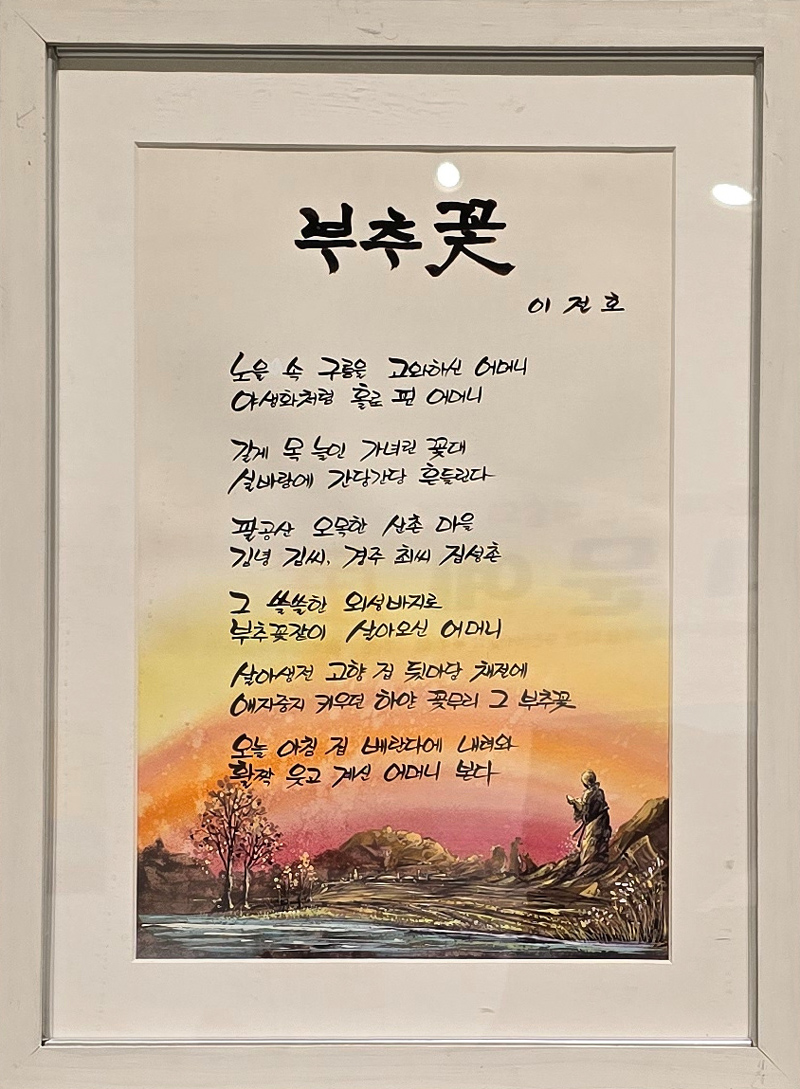 부추꽃
이전호
노을 속 구름을 고와하신 어머니
야생화처럼 홀로 핀 어머니
길게 목 늘인 가녀린 꽃대
실바람에 간당간당 흔들린다
팔공산 오목한 산촌 마을
김녕 김씨, 경주 최씨 집성촌
그 쓸쓸한 외성바지로
부추꽃같이 살아오신 어머니
살아생전 고향 집 뒷마당 채전에
애지중지 키우던 하얀 꽃무리 그 부추꽃
오늘 아침 집 베란다에 내려와
활짝 웃고 계신 어머니 본다